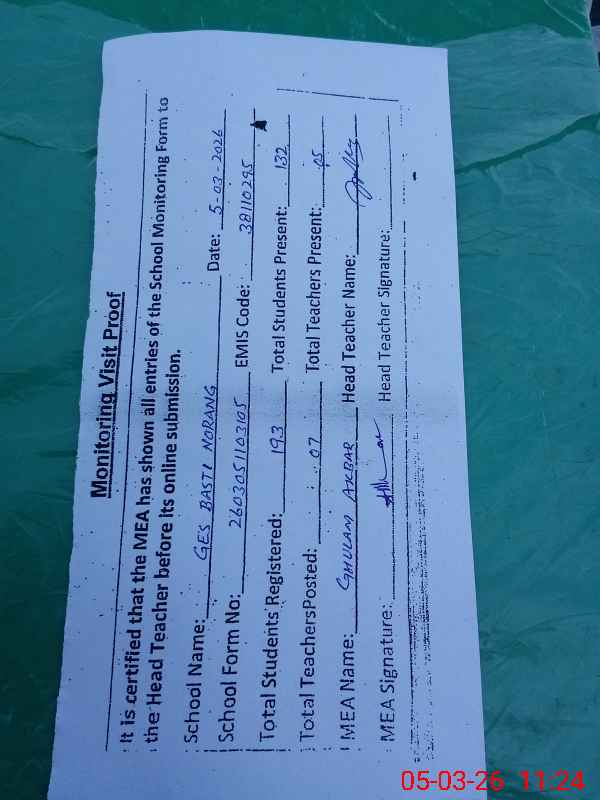 Monitoring Visit Proof
It is certified that the MEA has shown all entries of the School Monitoring Form to
the Head Teacher before its online submission.
School Name: GES BASTI NORANG Date: 5-03-2026
School Form No: 26030511103105 EMIS Code: 38110295
Total Students Registered: 193 Total Students Present: 132
Total TeachersPosted: 07 Total Teachers Present: 05
MEA Name: GHULAM AKBAR Head Teacher Name:
MEA Signature: Head Teacher Signature:
05-03-26 11:24